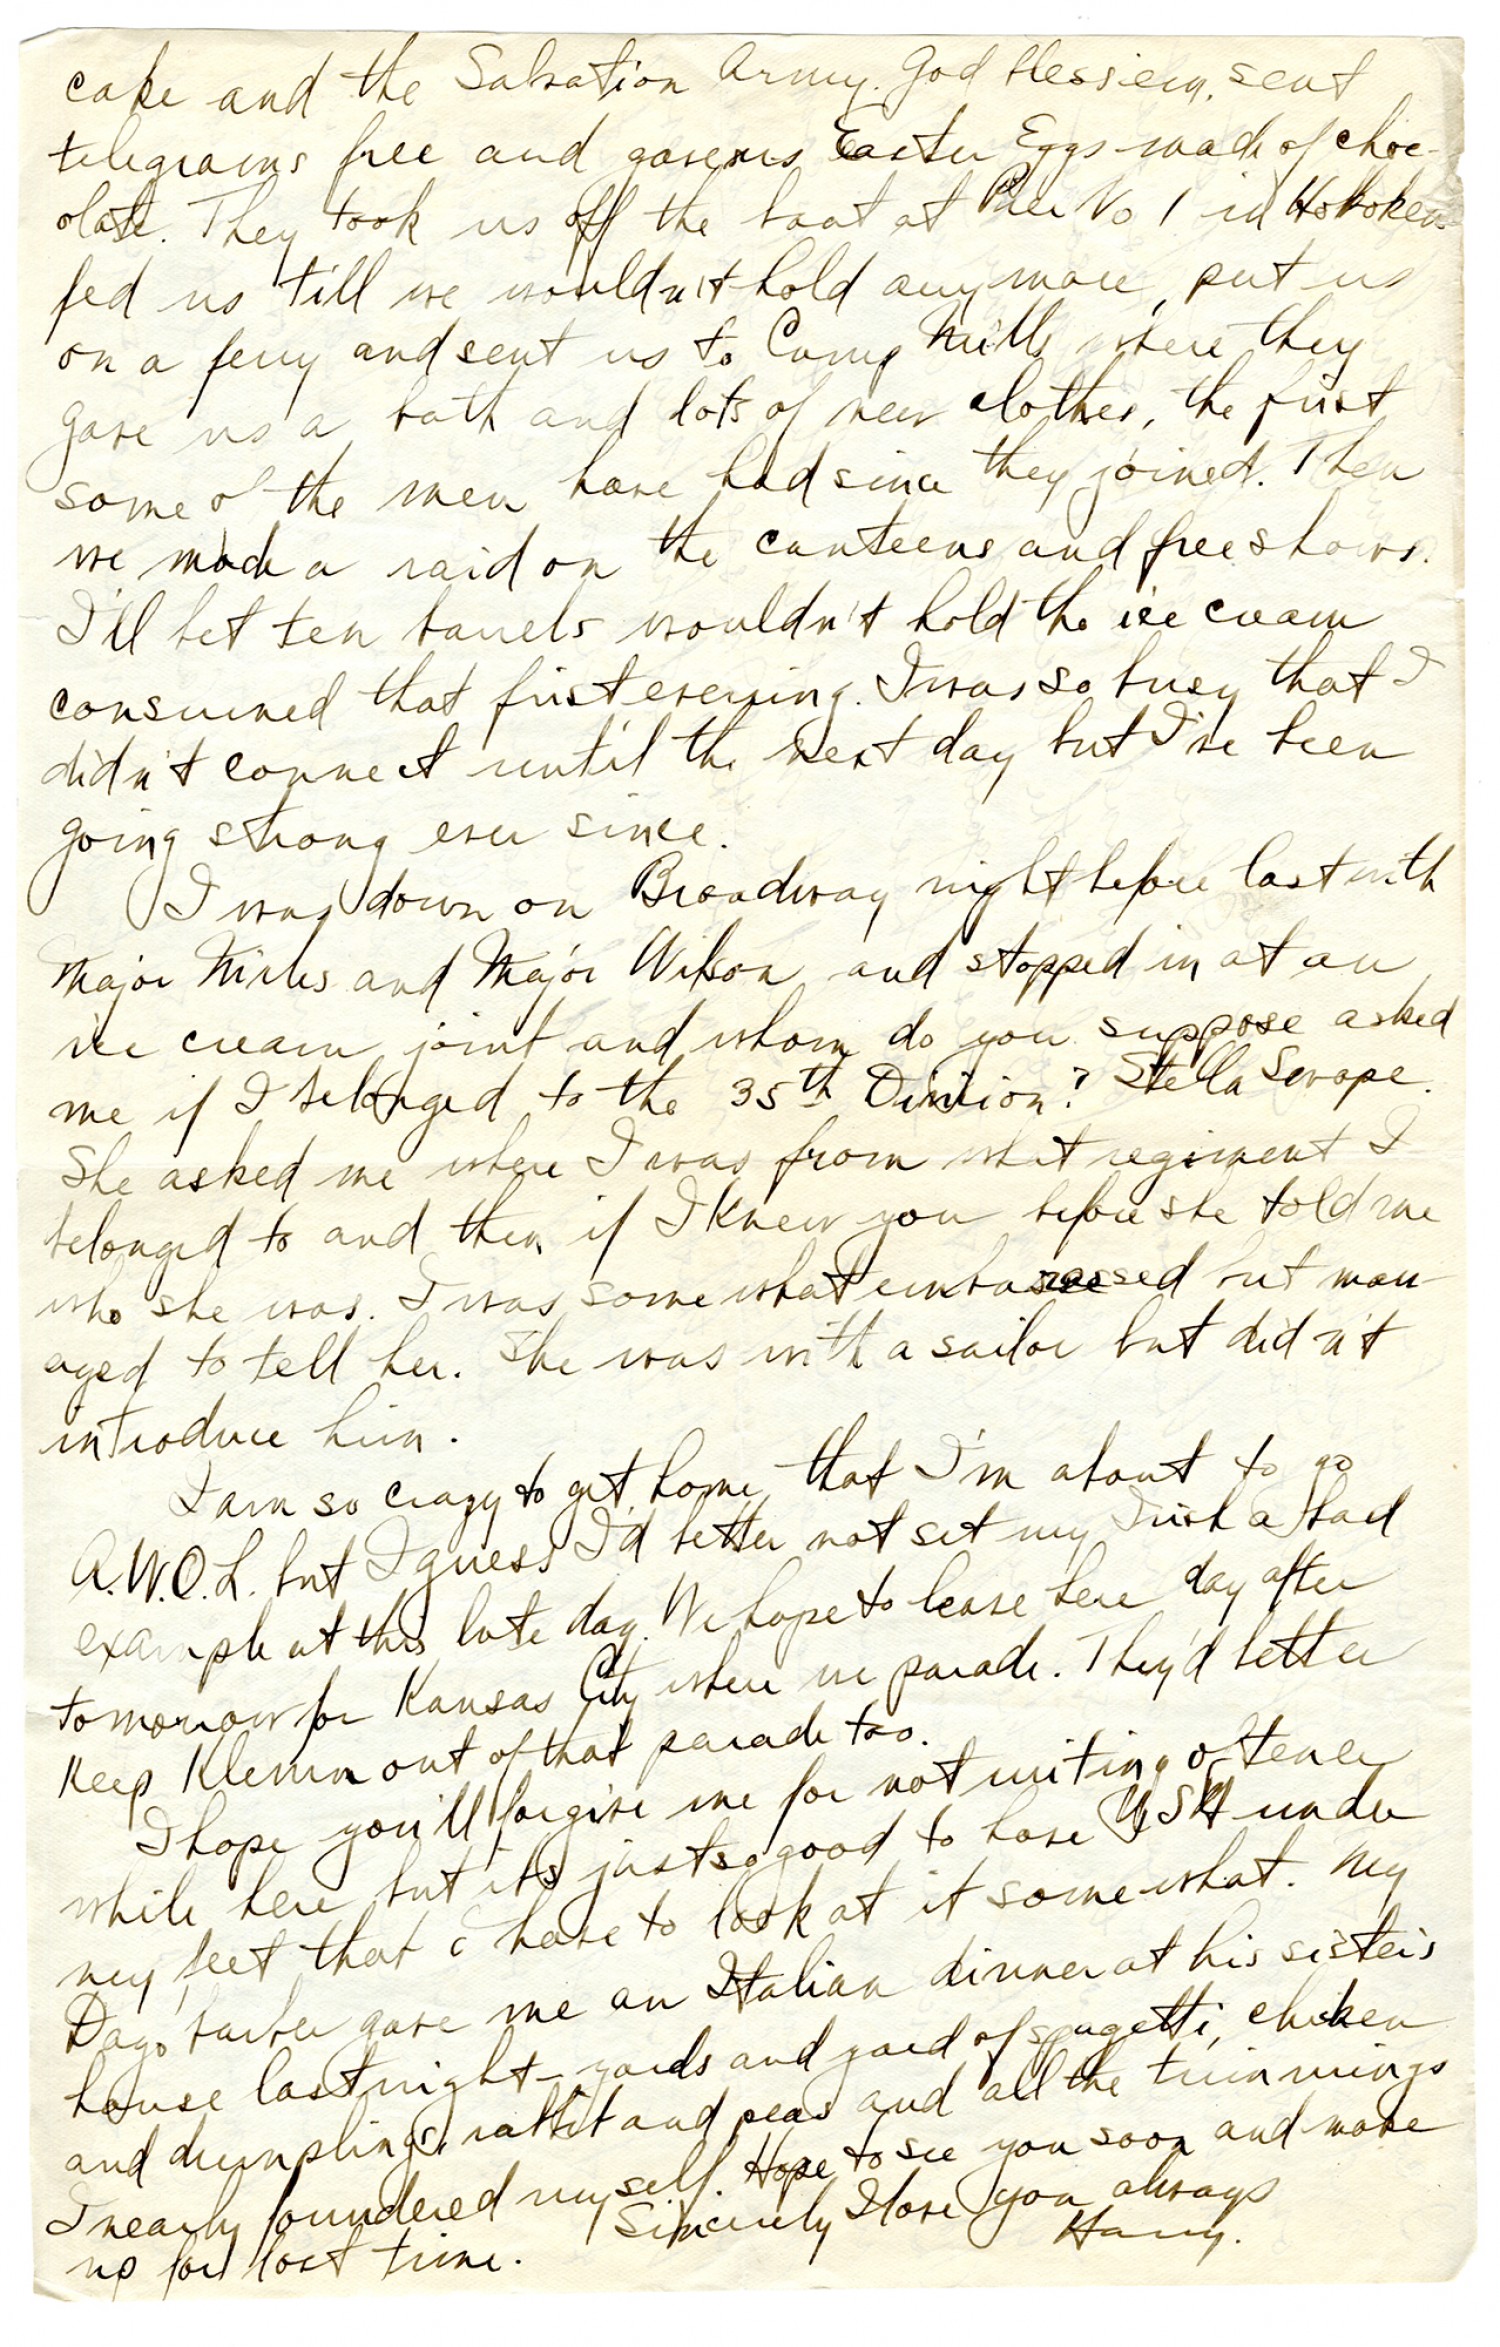 cake and the Salvation Army. God bless'em, sent
telegrams free and gave us Easter Eggs made of choc-
olate. They took us off the boat at Pier No 1 in Hoboken
fed us till we wouldn't hold any more, put us
on a ferry and sent us to Camp Mills where they
gave us a bath and lots of new clothes, the first
some of the men have had since they joined. Then
we made a raid on the canteens and free shows.
I'll bet ten barrels wouldn't hold the ice cream
consumed that first evening. I was so busy that I
didn't connect until the next day but I've been
going strong ever since.
I was down on Broadway night before last with
Major Miles and Major Wilson and stopped in at an
ice cream joint and whom do you suppose asked
me if I belonged to the 35th Division? Stella Swope.
She asked me where I was from what regiment I
belonged to and then if I knew you before she told me
who she was. I was somewhat embarrassed but man-
aged to tell her. She was with a sailor but didn't
introduce him.
I am so crazy to get home that I'm about to go
A.W.O.L. but I guess I'd better not set my Irish a bad
example at this late day. We hope to leave here day after
tomorrow for Kansas City where we parade. They'd better
keep Klemm out of that parade too.
I hope you'll forgive me for not writing oftener
while here but its just so good to have USA under
my feet that I have to look at it somewhat. My
Dago barber gave me an Italian dinner at his sister's
house last night - yards and yard of spagetti, chicken
and dumplings, rabbit and peas and all the trimmings
I nearly foundered myself. Hope to see you soon and make
up for lost time. Sincerely I love you always
Harry.